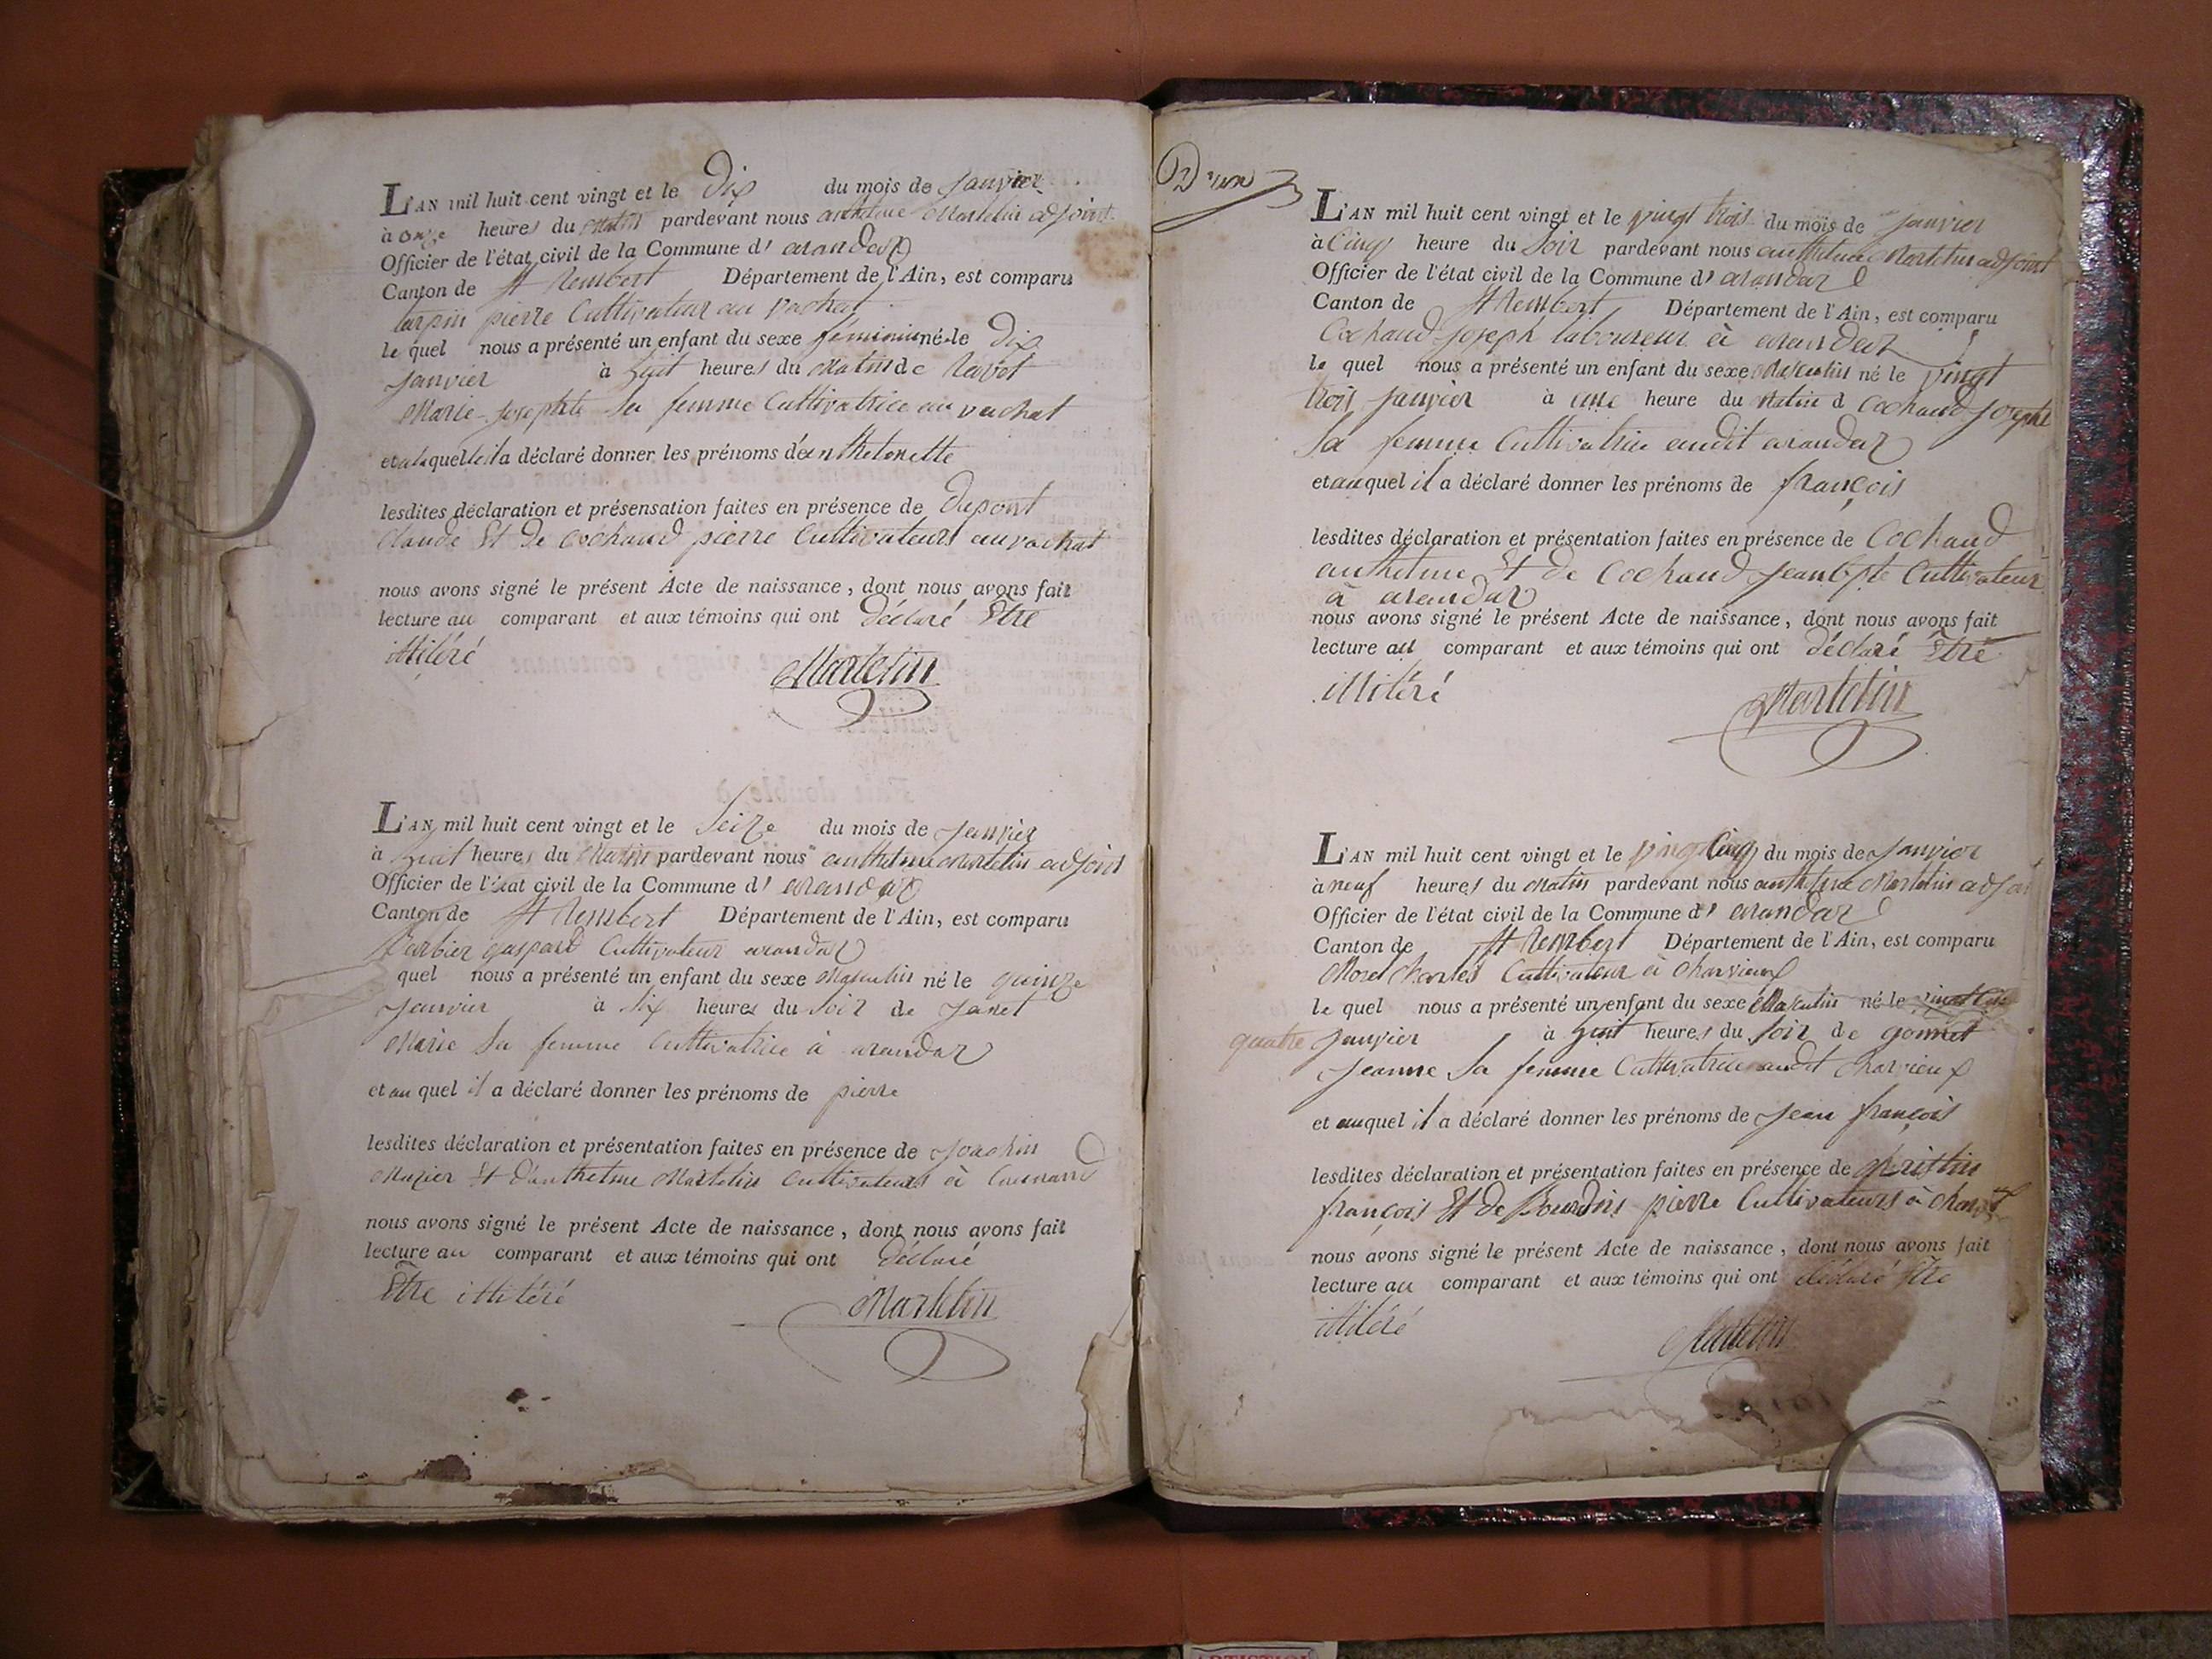 L'AN mil huit cent vingt et le Dix du mois de Janvier
à onze heures du Matin pardevant nous anthelme Martelin adjoint
Officier de l'état civil de la Commune d' arandaz
Canton de St Rembert Département de l'Ain, est comparu
tarpin pierre Cultivateur au vachat
le quel nous a présenté un enfant du sexe féminin né le Dix
Janvier à huit heures du Matin de Ravot
Marie Josephte Sa femme Cultivatrice au vachat
et a laquelle il a déclaré donner les prénoms d'anthelmette
lesdites déclaration et présensation faites en présence de Dupont
Claude Et De Cochaud pierre Cultivateurs au vachat
nous avons signé le présent Acte de naissance, dont nous avons fait
lecture au comparant et aux témoins qui ont Déclaré Être
illiléré
Martelin
L'AN mil huit cent vingt et le Seize du mois de Janvier
à huit heures du Matin pardevant nous anthelme Martelin adjoint
Officier de l'état civil de la Commune d' arandaz
Canton de St Rembert Département de l'Ain, est comparu
gaspard Cultivateur arandaz
quel nous a présenté un enfant du sexe Masculin né le quinze
Janvier à Six heures du Soir de Janet
Marie Sa femme Cultivatrice à arandaz
et au quel il a déclaré donner les prénoms de pierre
lesdites déclaration et présentation faites en présence de Joachim
Muzier Et D'anthelme Martelin Cultivateurs à
nous avons signé le présent Acte de naissance, dont nous avons fait
lecture au comparant et aux témoins qui ont Déclaré
Être illiléré
Martelin
L'AN mil huit cent vingt et le vingt trois du mois de Janvier
à Cinq heure du Soir pardevant nous anthelme Martelin adjoint
Officier de l'état civil de la Commune d' arandaz
Canton de St Rembert Département de l'Ain, est comparu
Cochaud Joseph laboureur à arandaz
le quel nous a présenté un enfant du sexe Masculin né le vingt
trois Janvier à une heure du Matin d Cochaud Josephte
Sa femme Cultivatrice audit arandaz
et au quel il a déclaré donner les prénoms de françois
lesdites déclaration et présentation faites en présence de Cochaud
anthelme Et de Cochaud Jean Bpte Cultivateur
à arandaz
nous avons signé le présent Acte de naissance, dont nous avons fait
lecture au comparant et aux témoins qui ont déclaré Être
illiléré
Martelin
L'AN mil huit cent vingt et le vingt Cinq du mois de Janvier
à neuf heures du Matin pardevant nous anthelme Martelin adjoi
Officier de l'état civil de la Commune d' arandaz
Canton de St Rembert Département de l'Ain, est comparu
Morel Charles Cultivateur à Charvieux
le quel nous a présenté un enfant du sexe Masculin né le
quatre Janvier à huit heures du Soir de gonnet
Jeanne Sa femme Cultivatrice audit Charvieux
et auquel il a déclaré donner les prénoms de Jean françois
lesdites déclaration et présentation faites en présence de Christin
françois Et de Bourdin pierre Cultivateurs à
nous avons signé le présent Acte de naissance, dont nous avons fait
lecture au comparant et aux témoins qui ont déclaré Être
illiléré
Martelin